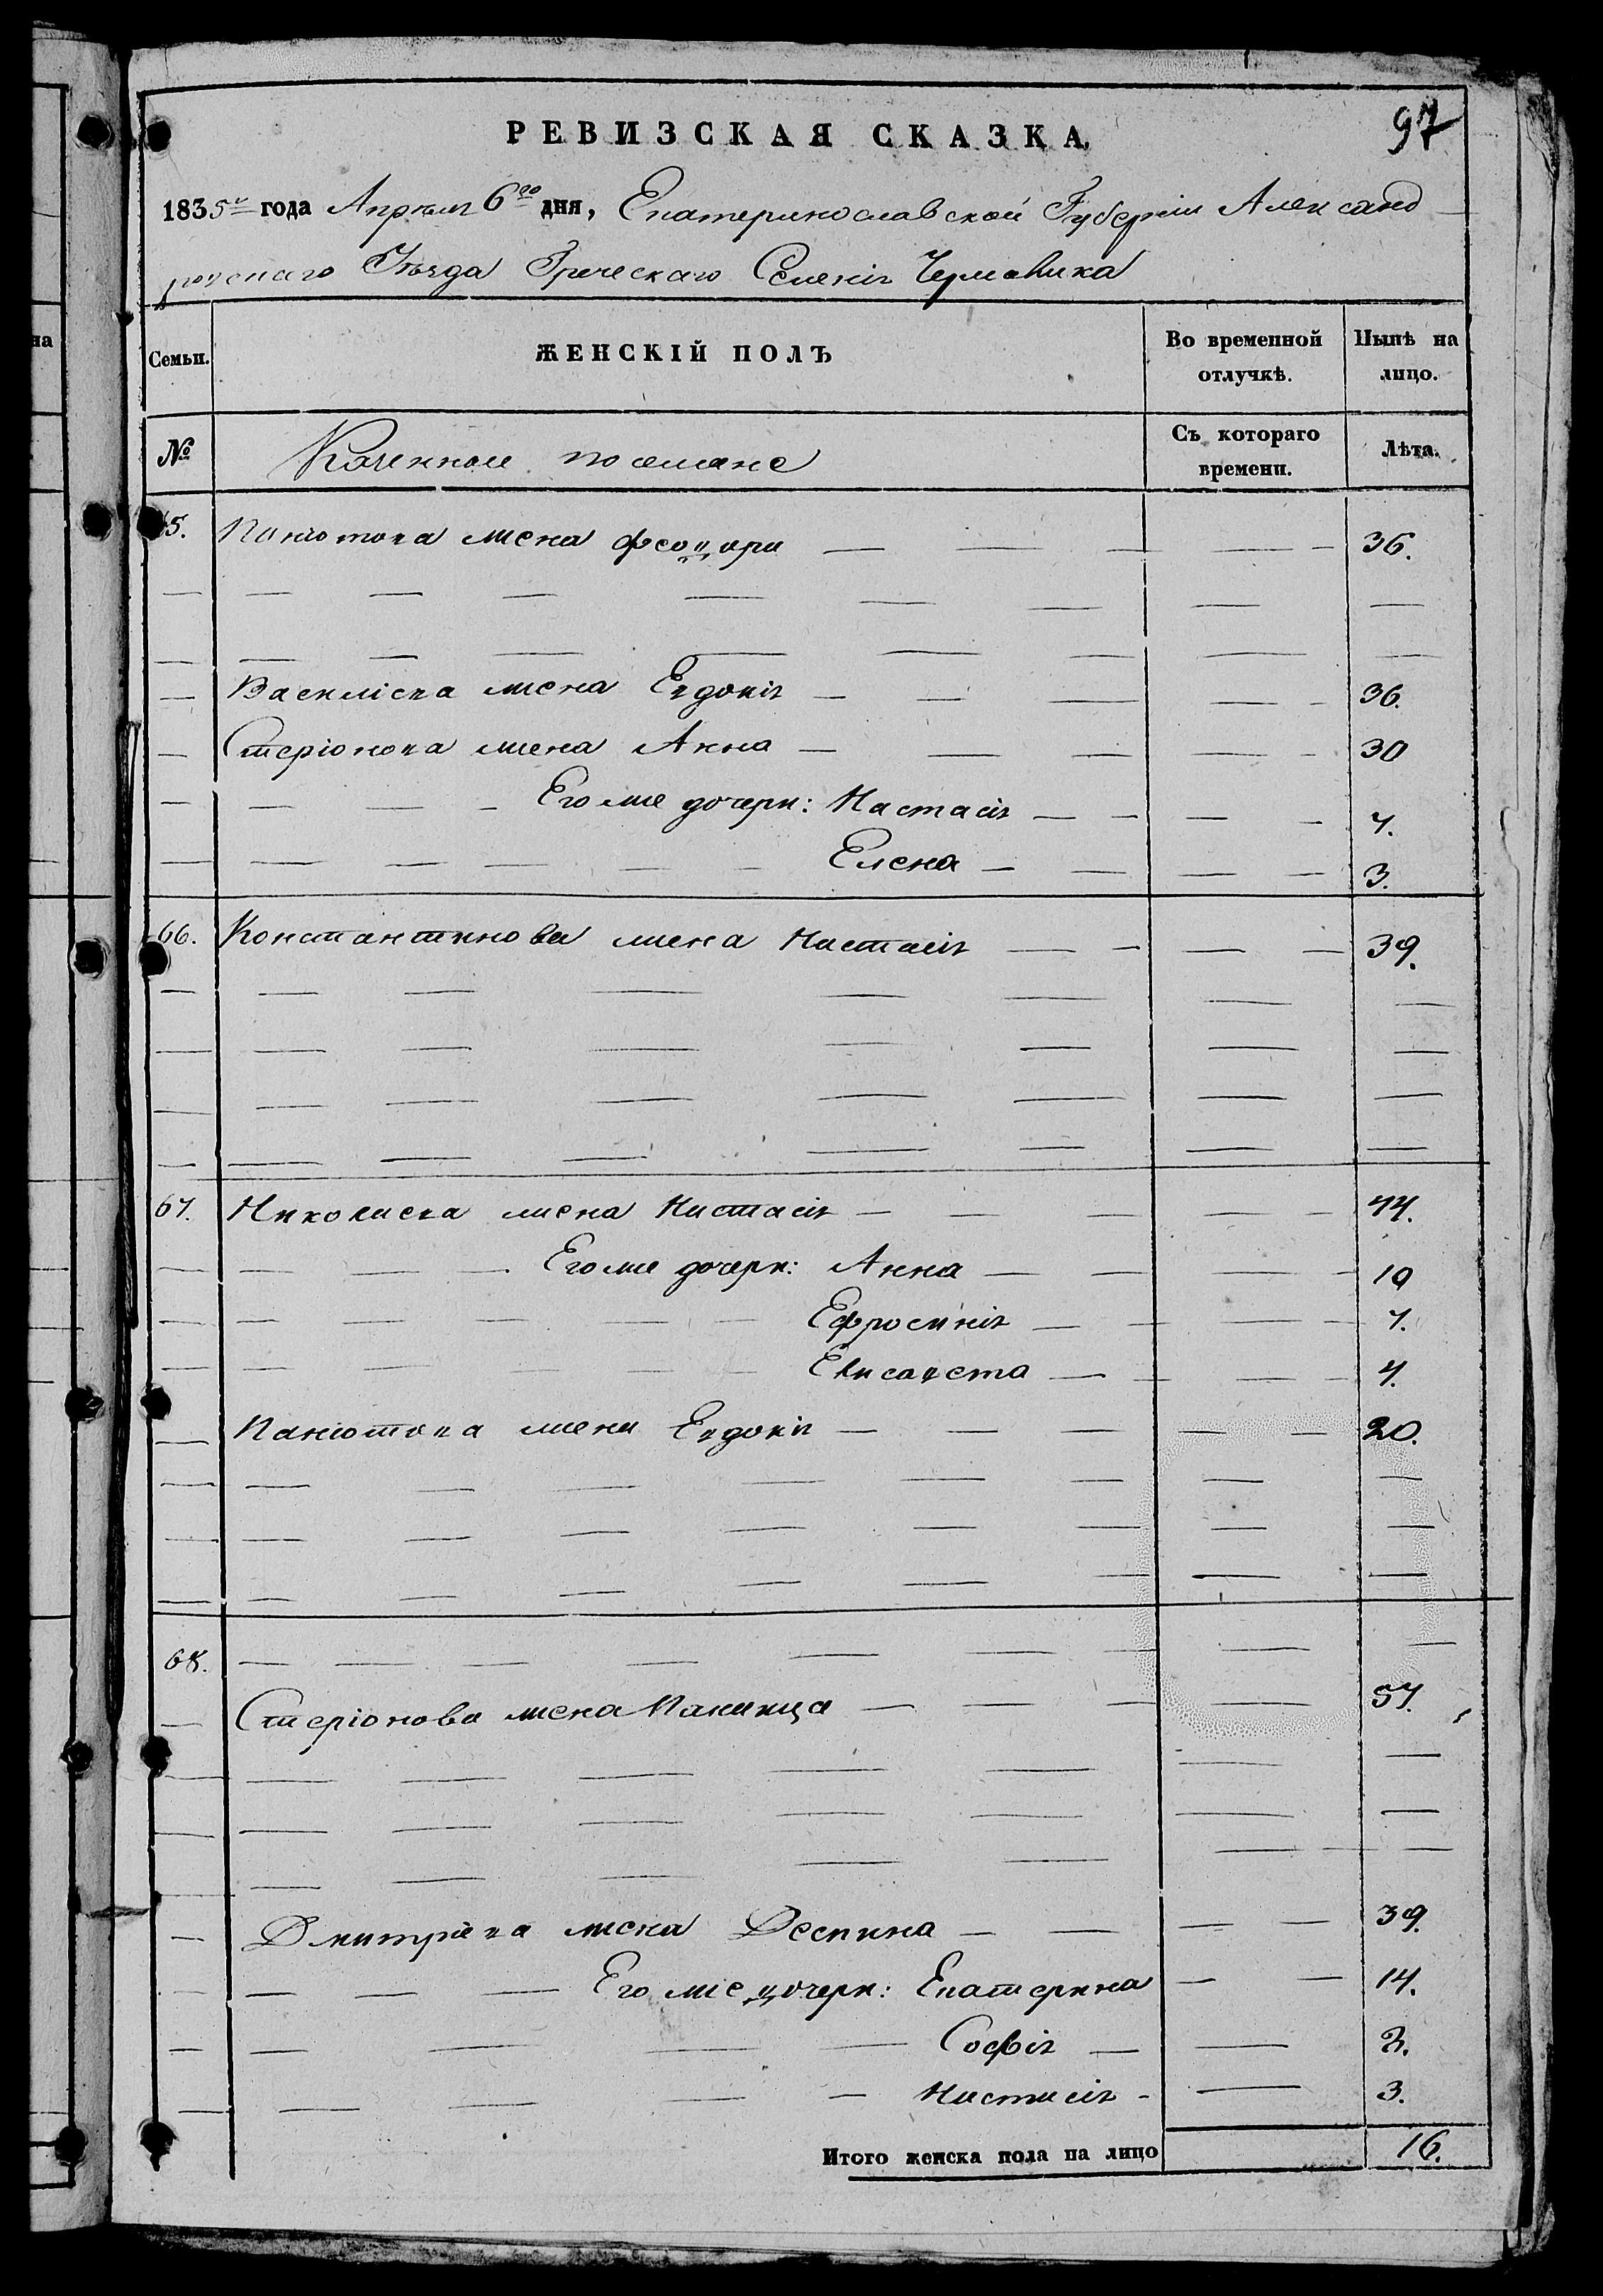 97
РЕВИЗСКАЯ СКАЗКА
1835го года Апреля 6го дня, Екатеринославской Губерніи Александ
ровскаго Уѣзда Греческаго Селенія Чермалика
на
Семьи. ЖЕНСКІЙ ПОЛЪ Во временной отлучкѣ. Нынѣ на лицо.
№ Казенные поселяне Съ котораго времени. Лѣта.
65. Панютова жена Феодора — — — — — 36.
— — — — — — — — —
— — — — — — — — —
— Василіева жена Евдокія — — — — — 36.
— Стеріонова жена Анна — — — — — 30
— — — — Его же дочери: Настасія — — — — 7.
— — — — — — Елена — — — — 3.
66. Константинова жена Настасія — — — — 39.
— — — — — — — — —
— — — — — — — — —
— — — — — — — — —
— — — — — — — — —
67. Николаева жена Настасія — — — — — 44.
— — — — Его же дочери: Анна — — — — 10
— — — — — — Ефросинія — — — — 7.
— — — — — — Елисавета — — — — 4.
— Панютова жена Евдокія — — — — — 20.
— — — — — — — — —
— — — — — — — — —
— — — — — — — — —
68. — — — — — — — — —
— Стеріонова жена Паница — — — — 57.
— — — — — — — — —
— — — — — — — — —
— — — — — — — — —
— Дмитріева жена Деспина — — — — 39.
— — — — Его же дочери: Екатерина — — 14.
— — — — — Софія — — 2.
— — — — — Настасія - — 3.
Итого женска пола на лицо 16.